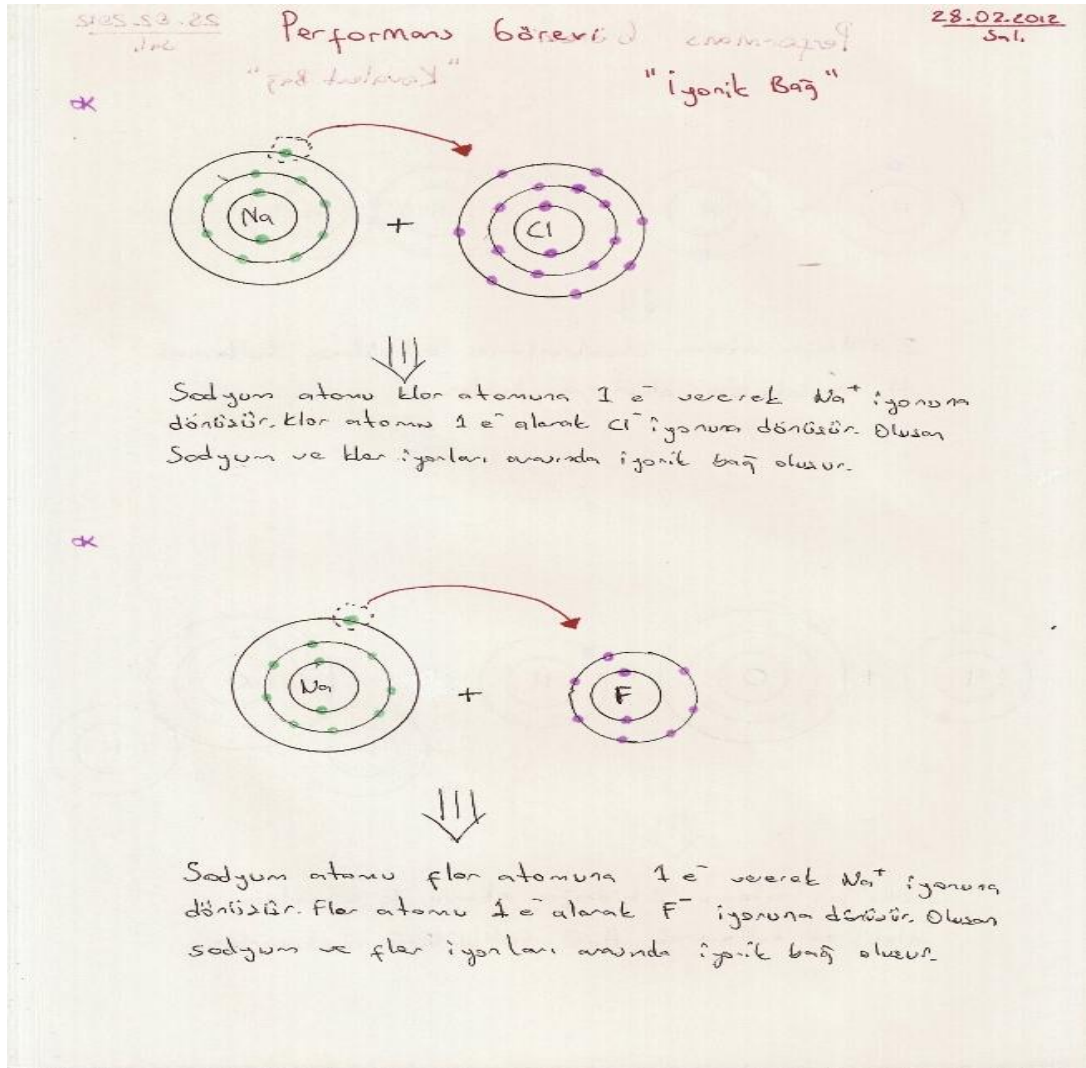 Performans Görevi
28.02.2012
Salı.
"İyonik Bağ"
Na
+
Cl
Sodyum atomu klor atomuna 1 e⁻ vererek Na⁺ iyonuna
dönüşür. Klor atomu 1 e⁻ alarak Cl⁻ iyonuna dönüşür. Oluşan
Sodyum ve klor iyonları arasında iyonik bağ oluşur.
Na
+
F
Sodyum atomu flor atomuna 1 e⁻ vererek Na⁺ iyonuna
dönüşür. Flor atomu 1 e⁻ alarak F⁻ iyonuna dönüşür. Oluşan
sodyum ve flor iyonları arasında iyonik bağ oluşur.